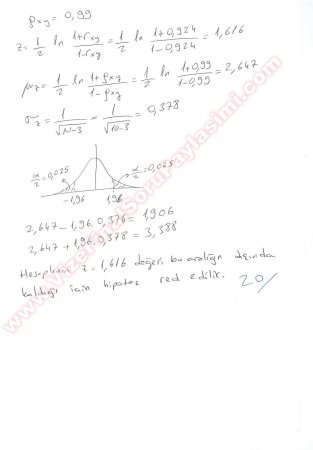 ρxy = 0,99
z = 1/2 ln (1+rxy)/(1-rxy) = 1/2 ln (1+0,924)/(1-0,924) = 1,616
μz = 1/2 ln (1+ρxy)/(1-ρxy) = 1/2 ln (1+0,99)/(1-0,99) = 2,647
σz = 1/√(N-3) = 1/√(10-3) = 0,378
α/2 = 0,025 α/2 = 0,025
-1,96 1,96
2,647 - 1,96. 0,378 = 1,906
2,647 + 1,96. 0,378 = 3,388
Hesaplanan z = 1,616 değeri, bu aralığın dışında
kaldığı için hipotez red edilir. 20/
www.VizeFinalSoruPaylasimi.com